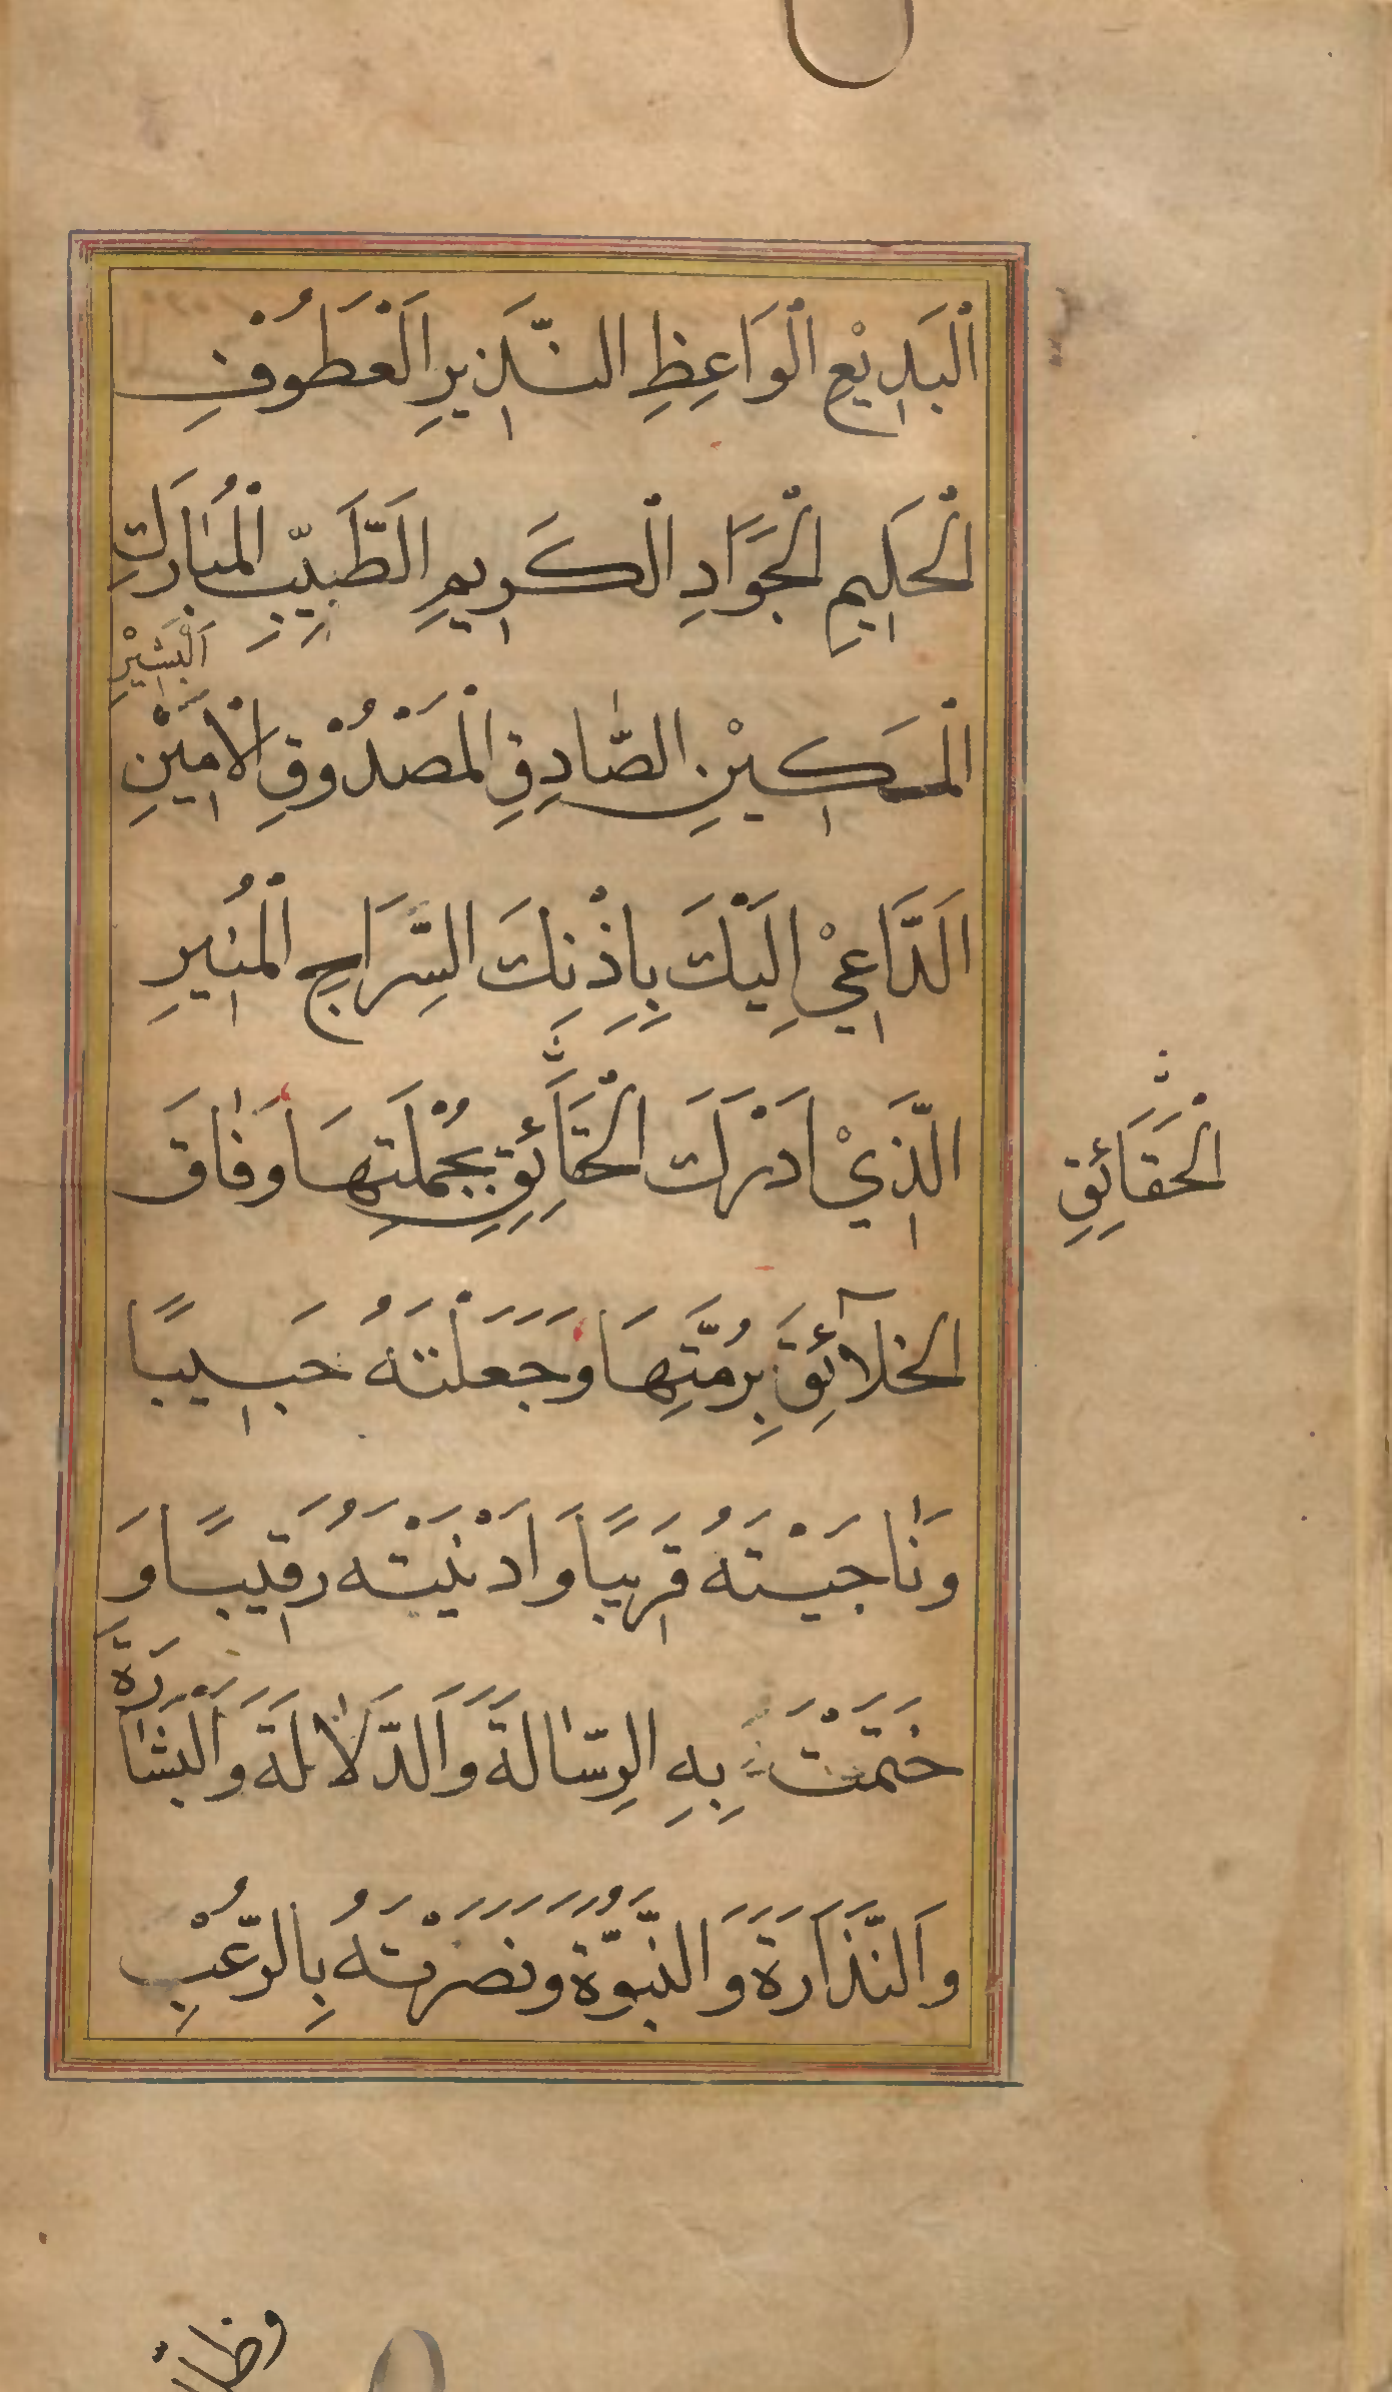 اَلْبَدِيْعِ الْوَاعِظِ النَّذِيرِ الْعَطُوْفِ
الْحَلِيمِ الْجَوَّادِ الْكَرِيمِ اَلطَّيِّبِ الْمُبَارَكِ
اَلْبَشِيْرِ
الْمَكِيْنِ الصَّادِقِ الْمَصْدُوْقِ الْاَمِيْنِ
اَلدَّاعِيْ اِلَيْكَ بِاِذْنِكَ السِّرَاجِ الْمُنِيرِ
الَّذِيْ اَدْرَكَ الْحَقَآئِقِ بِجُمْلَتِهَا وَفَاقَ
الْحَقَائِقِ
الخلآئِقَ بِرُمَّتِهَا وَجَعَلْتَهُ حَبِيبًا
وَنَاجَيْتَهُ قَرِيبًا وَاَدْنَيْتَهُ رَقِيبًا وَ
خَتَمْتَ بِهِ الرِّسَالَةَ وَالدَّلَالَةَ وَالْبَشَا
رَةَ
وَالنَّذَارَةَ وَالنُّبُوَّةَ وَنَصَرْتَهُ بِالرُّعْبِ